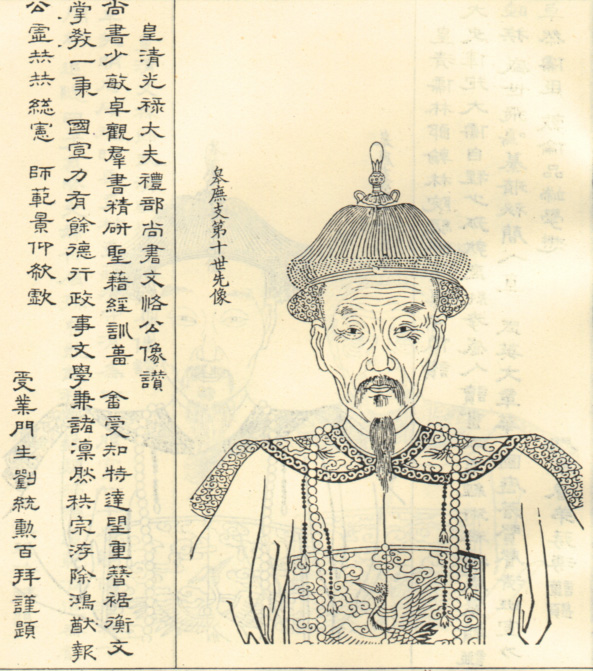 皋廡支第十世先像
皇清光祿大夫禮部尚書文恪公像讚
尚書少敏卓觀羣書精研聖藉經訓菑畬受知特達望重簪裾衡文
掌教一秉國宣力有餘德行政事文學兼諸凜然秩宗洊除鴻猷報
公虛總憲師範景仰欷歔
受業門生劉統勳百拜謹題